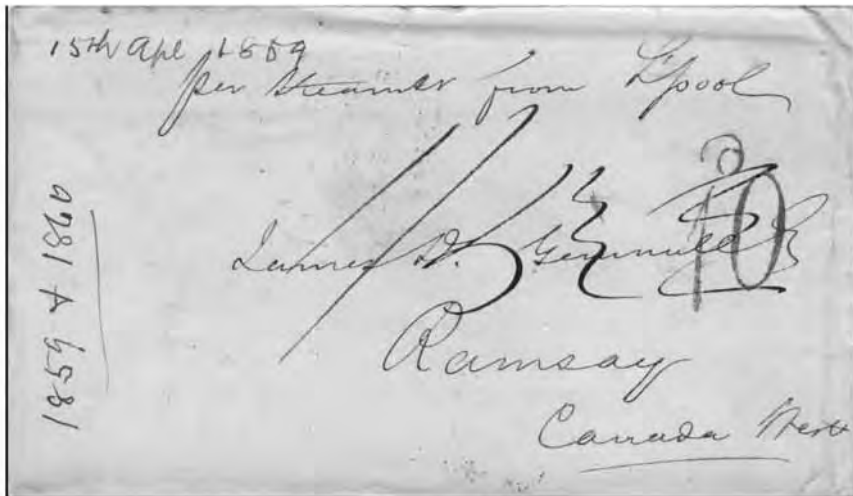 15th Apl 1859
per Steamer from L'pool
10
James D. Gemmill
Ramsay
Canada West
1859